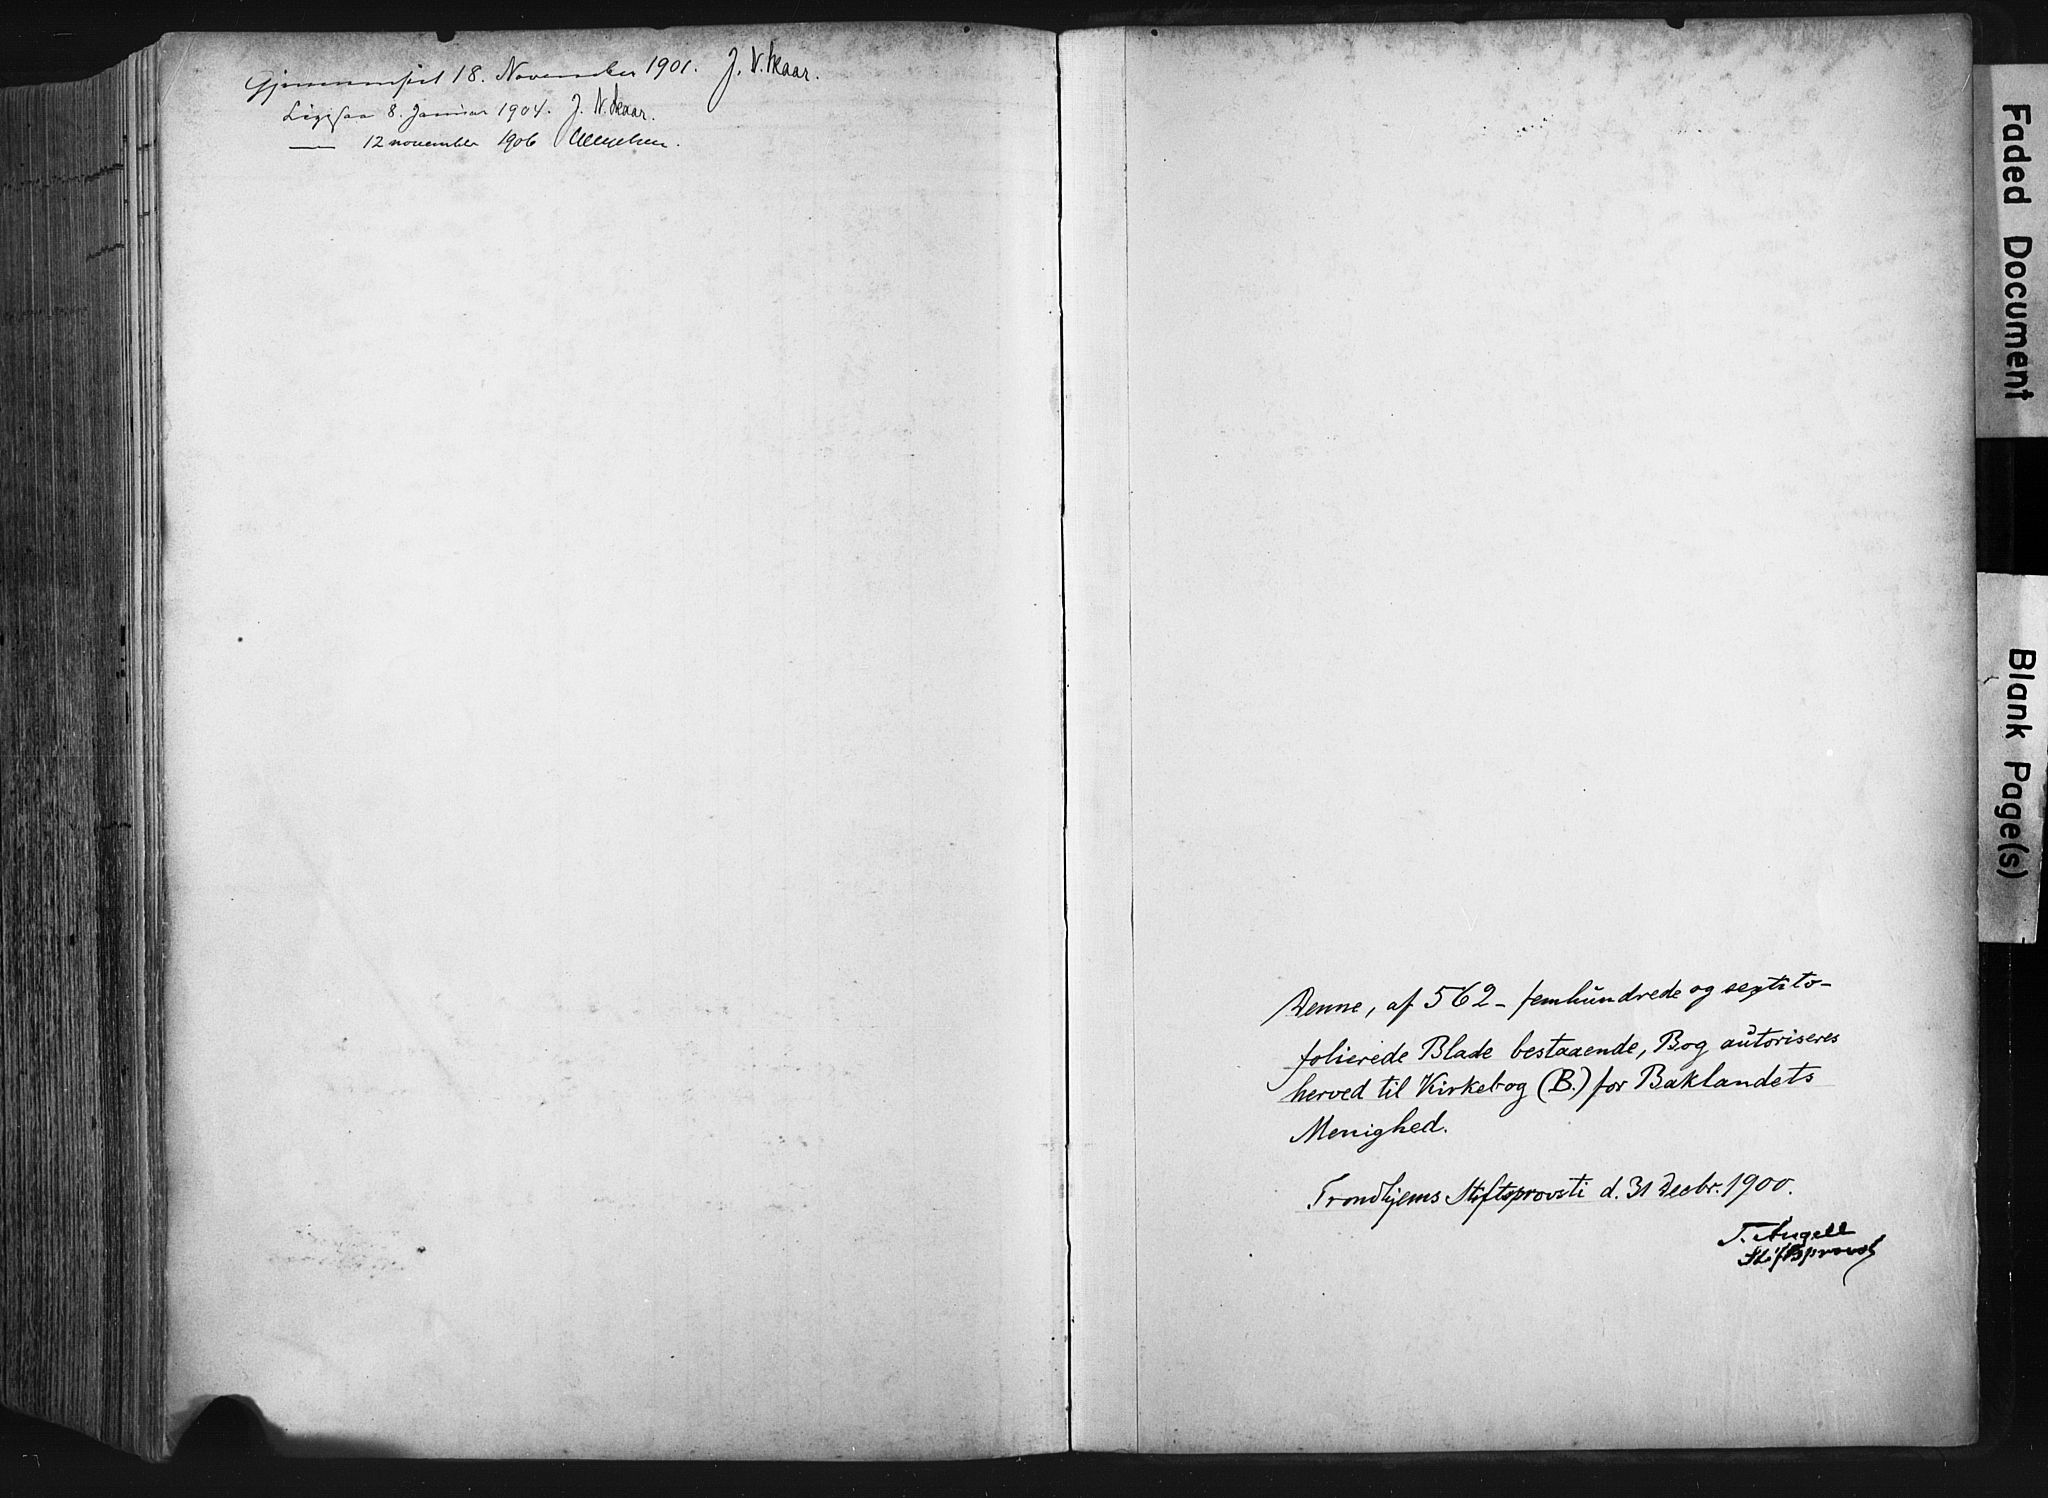 Gjennemseet 18. November 1901. J. N. Skaar.
Ligesaa 8. Januar 1904. J. N. Skaar.
— 12 november 1906
Denne, af 562 - femhundrede og sextito-
folierede Blade bestaaende, Bog autoriseres
herved til Kirkebog (B.) for Baklandets
Menighed.
Trondhjems Stiftsprovsti d. 31 Decbr. 1900.
T. Angell
Stiftsprovst
Faded Document
Blank Page(s)